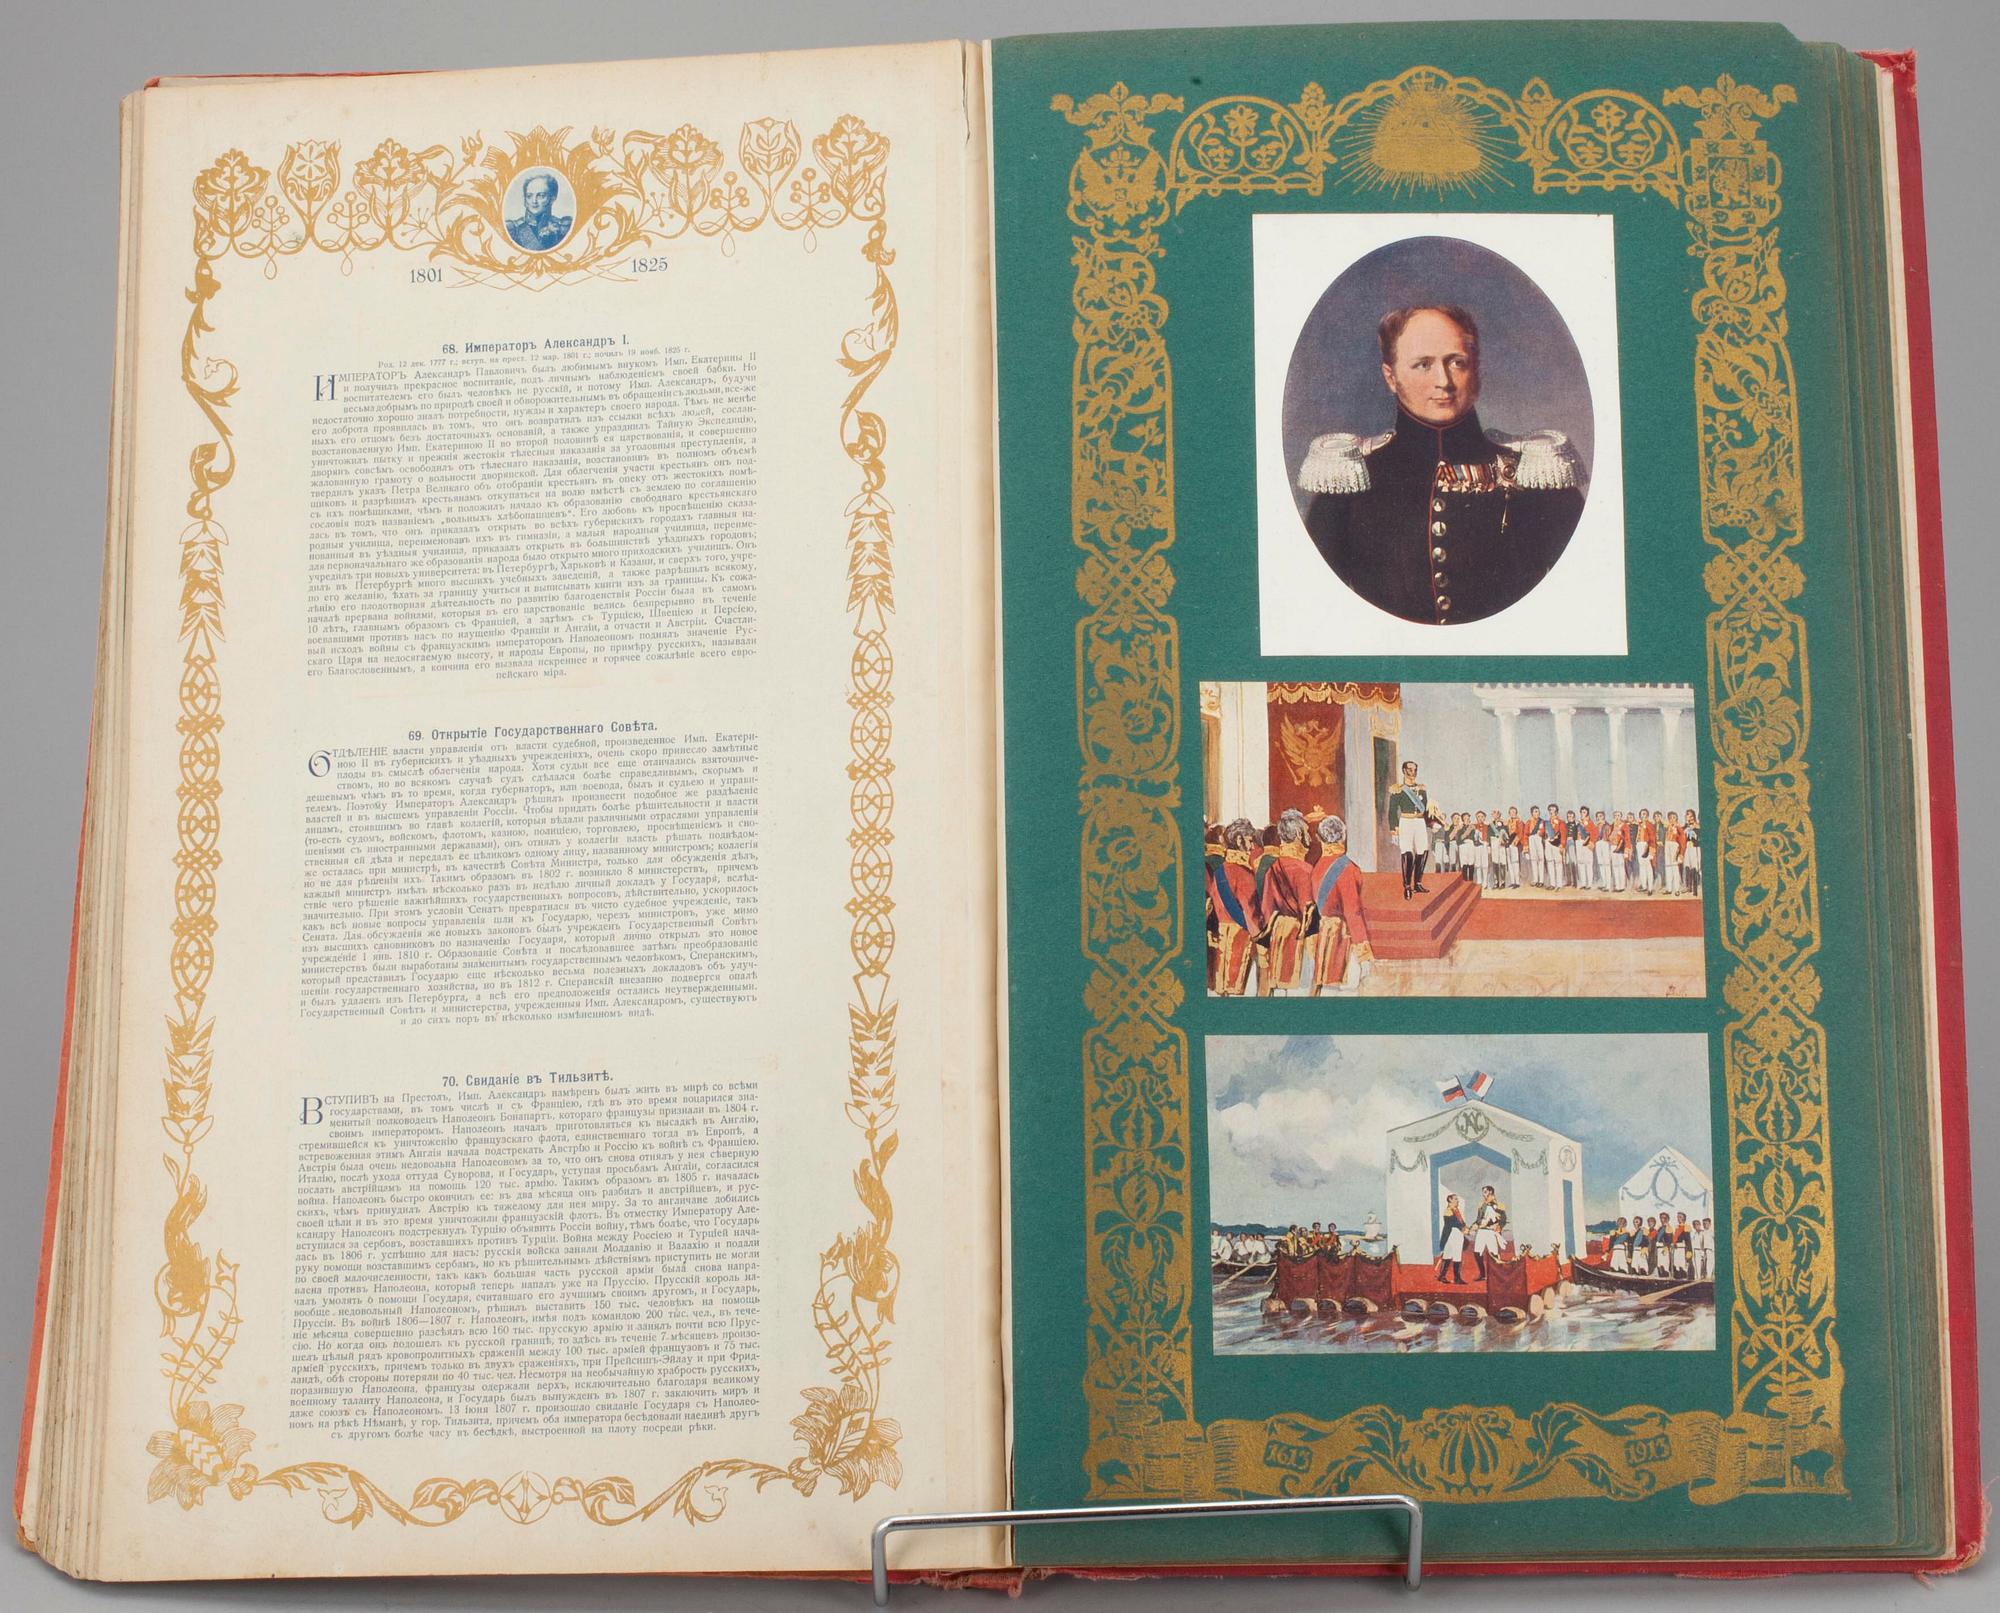 1801 1825
68. Императоръ Александръ I.
Род. 12 дек. 1777 г.; вступ. на прест. 12 мар. 1801 г.; почилъ 19 нояб. 1825 г.
ИМПЕРАТОРЪ Александръ Павловичъ былъ любимымъ внукомъ Имп. Екатерины II
и получилъ прекрасное воспитаніе, подъ личнымъ наблюденіемъ своей бабки. Но
воспитателемъ его былъ человѣкъ не русскій, и потому Имп. Александръ, будучи
весьма добрымъ по природѣ своей и обворожительнымъ въ обращеніи съ людьми, все-же
недостаточно хорошо зналъ потребности, нужды и характеръ своего народа. Тѣмъ не менѣе
его доброта проявилась въ томъ, что онъ возвратилъ изъ ссылки всѣхъ людей, сослан-
ныхъ его отцомъ безъ достаточныхъ основаній, а также упразднилъ Тайную Экспедицію,
возстановленную Имп. Екатериною II во второй половинѣ ея царствованія, и совершенно
уничтожилъ пытку и прежнія жестокія тѣлесныя наказанія за уголовныя преступленія, а
дворянъ совсѣмъ освободилъ отъ тѣлеснаго наказанія, возстановивъ въ полномъ объемѣ
жалованную грамоту о вольности дворянской. Для облегченія участи крестьянъ онъ под-
твердилъ указъ Петра Великаго объ отобраніи крестьянъ въ опеку отъ жестокихъ помѣ-
щиковъ и разрѣшилъ крестьянамъ откупаться на волю вмѣстѣ съ землею по соглашенію
съ ихъ помѣщиками, чѣмъ и положилъ начало къ образованію свободнаго крестьянскаго
сословія подъ названіемъ „вольныхъ хлѣбопашцевъ“. Его любовь къ просвѣщенію сказа-
лась въ томъ, что онъ приказалъ открыть во всѣхъ губернскихъ городахъ главныя на-
родныя училища, переименовавъ ихъ въ гимназіи, а малыя народныя училища, переиме-
нованныя въ уѣздныя училища, приказалъ открыть въ большинствѣ уѣздныхъ городовъ;
для первоначальнаго же образованія народа было открыто много приходскихъ училищъ. Онъ
учредилъ три новыхъ университета: въ Петербургѣ, Харьковѣ и Казани, и сверхъ того, учре-
дилъ въ Петербургѣ много высшихъ учебныхъ заведеній, а также разрѣшилъ всякому,
по его желанію, ѣхать за границу учиться и выписывать книги изъ за границы. Къ сожа-
лѣнію его плодотворная дѣятельность по развитію благоденствія Россіи была въ самомъ
началѣ прервана войнами, которыя въ его царствованіе велись безпрерывно въ теченіе
10 лѣтъ, главнымъ образомъ съ Франціей, а затѣмъ съ Турціею, Швеціею и Персіею,
воевавшими противъ насъ по наущенію Франціи и Англіи, а отчасти и Австріи. Счастли-
вый исходъ войны съ французскимъ императоромъ Наполеономъ поднялъ значеніе Рус-
скаго Царя на недосягаемую высоту, и народы Европы, по примѣру русскихъ, называли
его Благословеннымъ, а кончина его вызвала искреннее и горячее сожалѣніе всего евро-
пейскаго міра.
69. Открытіе Государственнаго Совѣта.
ОТДѢЛЕНІЕ власти управленія отъ власти судебной, произведенное Имп. Екатери-
ною II въ губернскихъ и уѣздныхъ учрежденіяхъ, очень скоро принесло замѣтные
плоды въ смыслѣ облегченія народа. Хотя судьи все еще отличались взяточниче-
ствомъ, но во всякомъ случаѣ судъ сдѣлался болѣе справедливымъ, скорымъ и
дешевымъ чѣмъ въ то время, когда губернаторъ, или воевода, былъ и судьею и управи-
телемъ. Поэтому Императоръ Александръ рѣшилъ произвести подобное же раздѣленіе
властей и въ высшемъ управленіи Россіи. Чтобы придать болѣе рѣшительности и власти
лицамъ, стоявшимъ во главѣ коллегій, которыя вѣдали различными отраслями управленія
(то-есть судомъ, войскомъ, флотомъ, казною, полиціею, торговлею, просвѣщеніемъ и сно-
шеніями съ иностранными державами), онъ отнялъ у коллегіи власть рѣшать подвѣдом-
ственныя ей дѣла и передалъ ее цѣликомъ одному лицу, названному министромъ; коллегія
же осталась при министрѣ, въ качествѣ Совѣта Министра, только для обсужденія дѣлъ,
но не для рѣшенія ихъ. Такимъ образомъ въ 1802 г. возникло 8 министерствъ, причемъ
каждый министръ имѣлъ нѣсколько разъ въ недѣлю личный докладъ у Государя, вслѣд-
ствіе чего рѣшеніе важнѣйшихъ государственныхъ вопросовъ, дѣйствительно, ускорилось
значительно. При этомъ условіи Сенатъ превратился въ чисто судебное учрежденіе, такъ
какъ всѣ новые вопросы управленія шли къ Государю, черезъ министровъ, уже мимо
Сената. Для обсужденія же новыхъ законовъ былъ учрежденъ Государственный Совѣтъ
изъ высшихъ сановниковъ по назначенію Государя, который лично открылъ это новое
учрежденіе 1 янв. 1810 г. Образованіе Совѣта и послѣдовавшее затѣмъ преобразованіе
министерствъ были выработаны знаменитымъ государственнымъ человѣкомъ, Сперанскимъ,
который представилъ Государю еще нѣсколько весьма полезныхъ докладовъ объ улуч-
шеніи государственнаго хозяйства, но въ 1812 г. Сперанскій внезапно подвергся опалѣ
и былъ удаленъ изъ Петербурга, а всѣ его предположенія остались неутвержденными.
Государственный Совѣтъ и министерства, учрежденныя Имп. Александромъ, существуютъ
и до сихъ поръ въ нѣсколько измѣненномъ видѣ.
70. Свиданіе въ Тильзитѣ.
ВСТУПИВЪ на Престолъ, Имп. Александръ намѣренъ былъ жить въ мирѣ со всѣми
государствами, въ томъ числѣ и съ Франціею, гдѣ въ это время воцарился зна-
менитый полководецъ Наполеонъ Бонапартъ, котораго французы признали въ 1804 г.
своимъ императоромъ. Наполеонъ началъ приготовляться къ высадкѣ въ Англію,
стремившейся къ уничтоженію французскаго флота, единственнаго тогда въ Европѣ, а
встревоженная этимъ Англія начала подстрекать Австрію и Россію къ войнѣ съ Франціею.
Австрія была очень недовольна Наполеономъ за то, что онъ снова отнялъ у нея сѣверную
Италію, послѣ ухода оттуда Суворова, и Государь, уступая просьбамъ Англіи, согласился
послать австрійцамъ на помощь 120 тыс. армію. Такимъ образомъ въ 1805 г. началась
война. Наполеонъ быстро окончилъ ее: въ два мѣсяца онъ разбилъ и австрійцевъ, и рус-
скихъ, чѣмъ принудилъ Австрію къ тяжелому для нея миру. За то англичане добились
своей цѣли и въ это время уничтожили французскій флотъ. Въ отместку Императору Але-
ксандру Наполеонъ подстрекнулъ Турцію объявить Россіи войну, тѣмъ болѣе, что Государь
вступился за сербовъ, возставшихъ противъ Турціи. Война между Россіею и Турціей нача-
лась въ 1806 г. успѣшно для насъ: русскія войска заняли Молдавію и Валахію и подали
руку помощи возставшимъ сербамъ, но къ рѣшительнымъ дѣйствіямъ приступить не могли
по своей малочисленности, такъ какъ большая часть русской арміи была снова напра-
влена противъ Наполеона, который теперь напалъ уже на Пруссію. Прусскій король на-
чалъ умолять о помощи Государя, считавшаго его лучшимъ своимъ другомъ, и Государь,
вообще недовольный Наполеономъ, рѣшилъ выставить 150 тыс. человѣкъ на помощь
Пруссіи. Въ войнѣ 1806—1807 г. Наполеонъ, имѣя подъ командою 200 тыс. чел., въ тече-
ніе мѣсяца совершенно разсѣялъ всю 160 тыс. прусскую армію и занялъ почти всю Прус-
сію. Но когда онъ подошелъ къ русской границѣ, то здѣсь въ теченіе 7 мѣсяцевъ произо-
шелъ цѣлый рядъ кровопролитныхъ сраженій между 100 тыс. арміей французовъ и 75 тыс.
арміей русскихъ, причемъ только въ двухъ сраженіяхъ, при Прейсишъ-Эйлау и при Фрид-
ландѣ, обѣ стороны потеряли по 40 тыс. чел. Несмотря на необычайную храбрость русскихъ,
поразившую Наполеона, французы одержали верхъ, исключительно благодаря великому
военному таланту Наполеона, и Государь былъ вынужденъ въ 1807 г. заключить миръ и
даже союзъ съ Наполеономъ. 13 Іюня 1807 г. произошло свиданіе Государя съ Наполео-
номъ на рѣкѣ Нѣманѣ, у гор. Тильзита, причемъ оба императора бесѣдовали наединѣ другъ
съ другомъ болѣе часу въ бесѣдкѣ, выстроенной на плоту посреди рѣки.
N
1613 1913